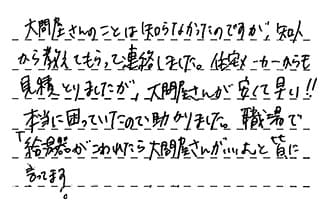 大問屋さんのことは知らなかったのですが、知人
から教えてもらって連絡しました。住宅メーカーからも
見積とりましたが、大問屋さんが安くて早い!!
本当に困っていたので助かりました。職場で
「給湯器がこわれたら大問屋さんがいいよ」と皆に
言ってます。